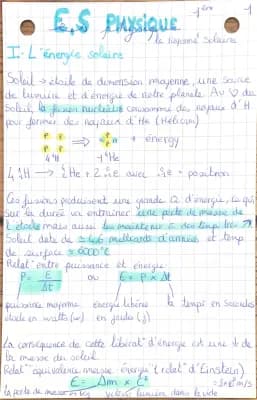 1ère
1
E,S PHYSIQUE
le rayonnt solaire
I - L'énergie solaire
Soleil → étoile de dimension moyenne, une source
de lumière et d'énergie de notre planète. Au ♡ du
Soleil, la fusion nucléaire consomme des noyaux d'H
pour former des noyaux d'He (Hélium)
P P P P ⇒ + énergy
4 ¹H ⁴He
4 ¹₁H → ⁴₂He + 2 ⁰₁e avec ⁰₁e = positron
Ces fusions produisent une grande Q d'énergie, ce qui
sur la durée va entraîner une perte de masse de
l'étoile mais aussi les maintenir à des temp très ↗
Soleil date de ≃ 4,6 milliards d'années et temp
de surface ≃ 6000°C
Relat° entre puissance et énergie
P = E/Δt ou E = P × Δt
puissance moyenne énergie libérée le temps en secondes
étoile en watts (w) en joules (j)
La conséquence de cette libérat° d'énergie est une ↓ de
la masse du soleil.
Relat° équivalence masse-énergie (relat° d'Einstein)
E = Δm × c²
la perte de masse en kg vitesse lumière dans le vide
= 3×10⁸ m/s